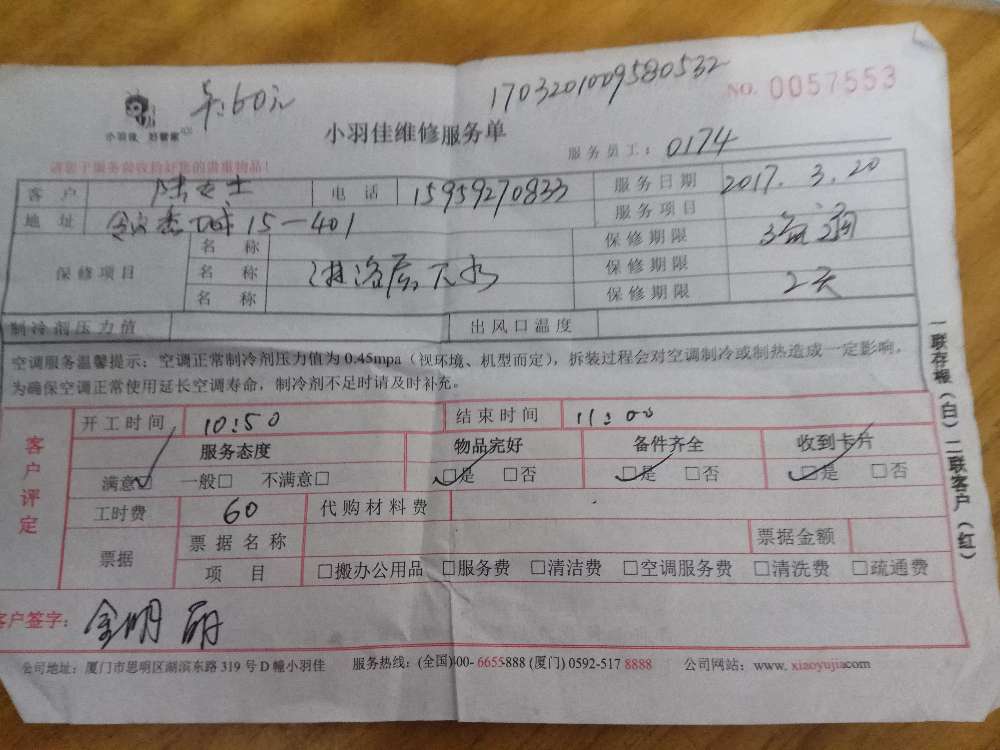 60元
1703201009580532
NO. 0057553
小羽佳 好管家
小羽佳维修服务单
服务员工: 0174
请您于服务前收拾好您的贵重物品!
客户 陆女士 电话 15959270833 服务日期 2017.3.20
地址 15-401 服务项目
保修项目
名称 保修期限
名称 淋浴房下水 保修期限
名称 保修期限 2天
制冷剂压力值 出风口温度
空调服务温馨提示:空调正常制冷剂压力值为0.45mpa(视环境、机型而定),拆装过程会对空调制冷或制热造成一定影响。
为确保空调正常使用延长空调寿命,制冷剂不足时请及时补充。
一联存根(白)二联客户(红)
客户评定
开工时间 10:50 结束时间 11:00
服务态度 物品完好 备件齐全 收到卡片
满意 一般□ 不满意□ □是 □否 □是 □否 □是 □否
工时费 60 代购材料费
票据 票据名称 票据金额
项目 □搬办公用品 □服务费 □清洁费 □空调服务费 □清洗费 □疏通费
客户签字: 金明丽
公司地址:厦门市思明区湖滨东路319号D幢小羽佳 服务热线:(全国)400-6655888 (厦门) 0592-517 8888 公司网站:www.xiaoyujia.com